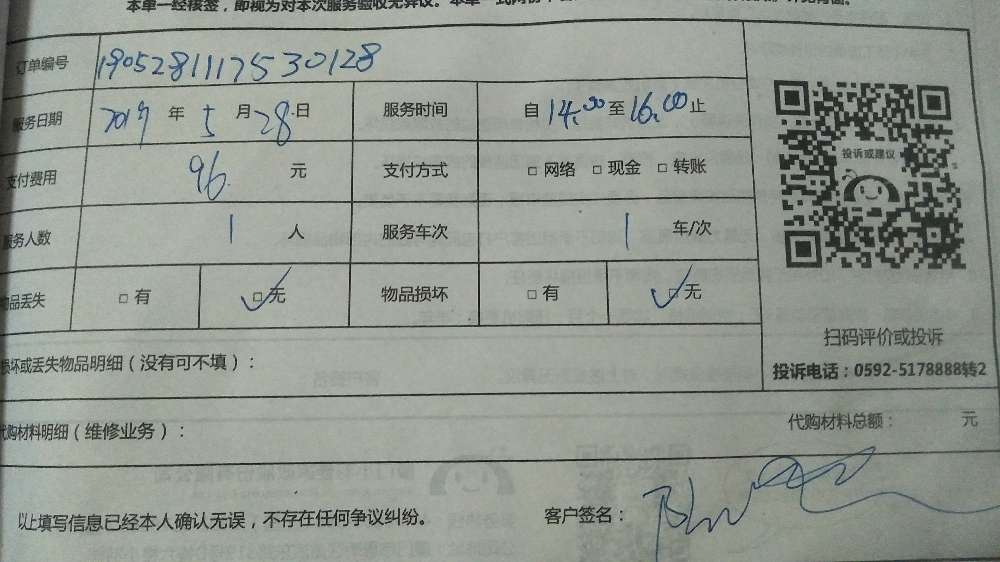 本单一经核签，即视为对本次服务验收无异议。本单一式两份
订单编号 1905281117530128
服务日期 2019 年 5 月 28 日 服务时间 自 14:00 至 16:00 止
投诉或建议
支付费用 96 元 支付方式 □ 网络 □ 现金 □ 转账
服务人数 1 人 服务车次 1 车/次
物品丢失 □ 有 ☑ 无 物品损坏 □ 有 ☑ 无
扫码评价或投诉
投诉电话：0592-5178888转2
损坏或丢失物品明细（没有可不填）：
代购材料明细（维修业务）： 代购材料总额： 元
以上填写信息已经本人确认无误，不存在任何争议纠纷。 客户签名：